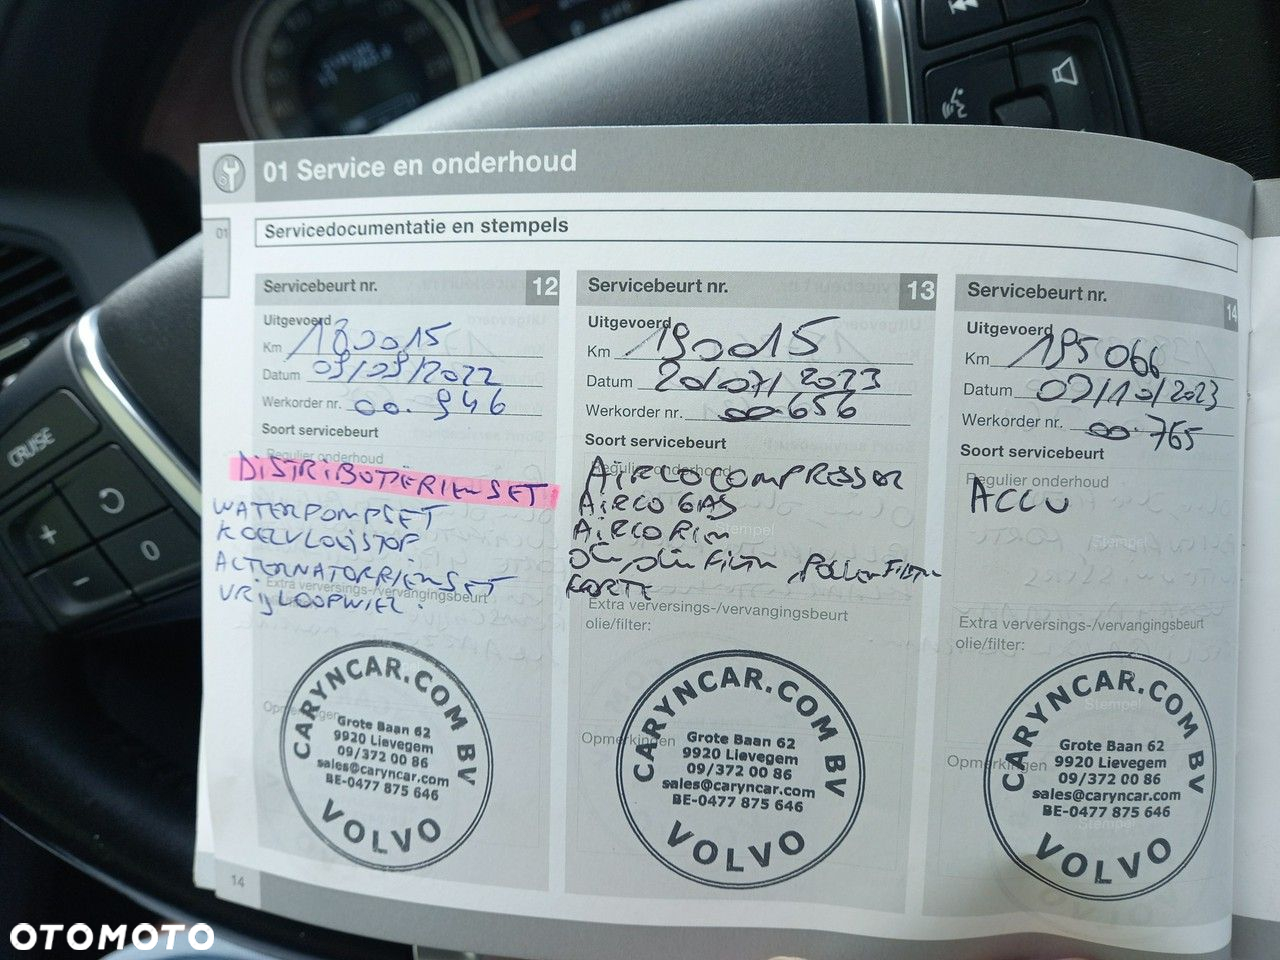 01 Service en onderhoud
01
Servicedocumentatie en stempels
Servicebeurt nr. 12
Uitgevoerd
Km 180015
Datum 09/09/2022
Werkorder nr. 00.946
Soort servicebeurt
Regulier onderhoud
DISTRIBUTIERIEMSET
WATERPOMPSET
KOELVLOEISTOF
ALTERNATORRIEMSET
VRIJLOOPWIEL.
Extra verversings-/vervangingsbeurt
Opmerkingen
CARYNCAR.COM BV
Grote Baan 62
9920 Lievegem
09/372 00 86
sales@caryncar.com
BE-0477 875 646
VOLVO
14
Servicebeurt nr. 13
Uitgevoerd
Km 190015
Datum 20/07/2023
Werkorder nr. 00.656
Soort servicebeurt
Regulier onderhoud
AIRCOCOMPRESSOR
AIRCO GAS
AIRCO RIEM
Stempel
Olie, oliefilter, Pollenfilter
FORTE
Extra verversings-/vervangingsbeurt
olie/filter:
Opmerkingen
CARYNCAR.COM BV
Grote Baan 62
9920 Lievegem
09/372 00 86
sales@caryncar.com
BE-0477 875 646
VOLVO
Servicebeurt nr. 14
Uitgevoerd
Km 195066
Datum 09/10/2023
Werkorder nr. 00.765
Soort servicebeurt
Regulier onderhoud
ACCU
Stempel
Extra verversings-/vervangingsbeurt
olie/filter:
Stempel
Opmerkingen
Stempel
CARYNCAR.COM BV
Grote Baan 62
9920 Lievegem
09/372 00 86
sales@caryncar.com
BE-0477 875 646
VOLVO
CRUISE
+
0
-
OTOMOTO